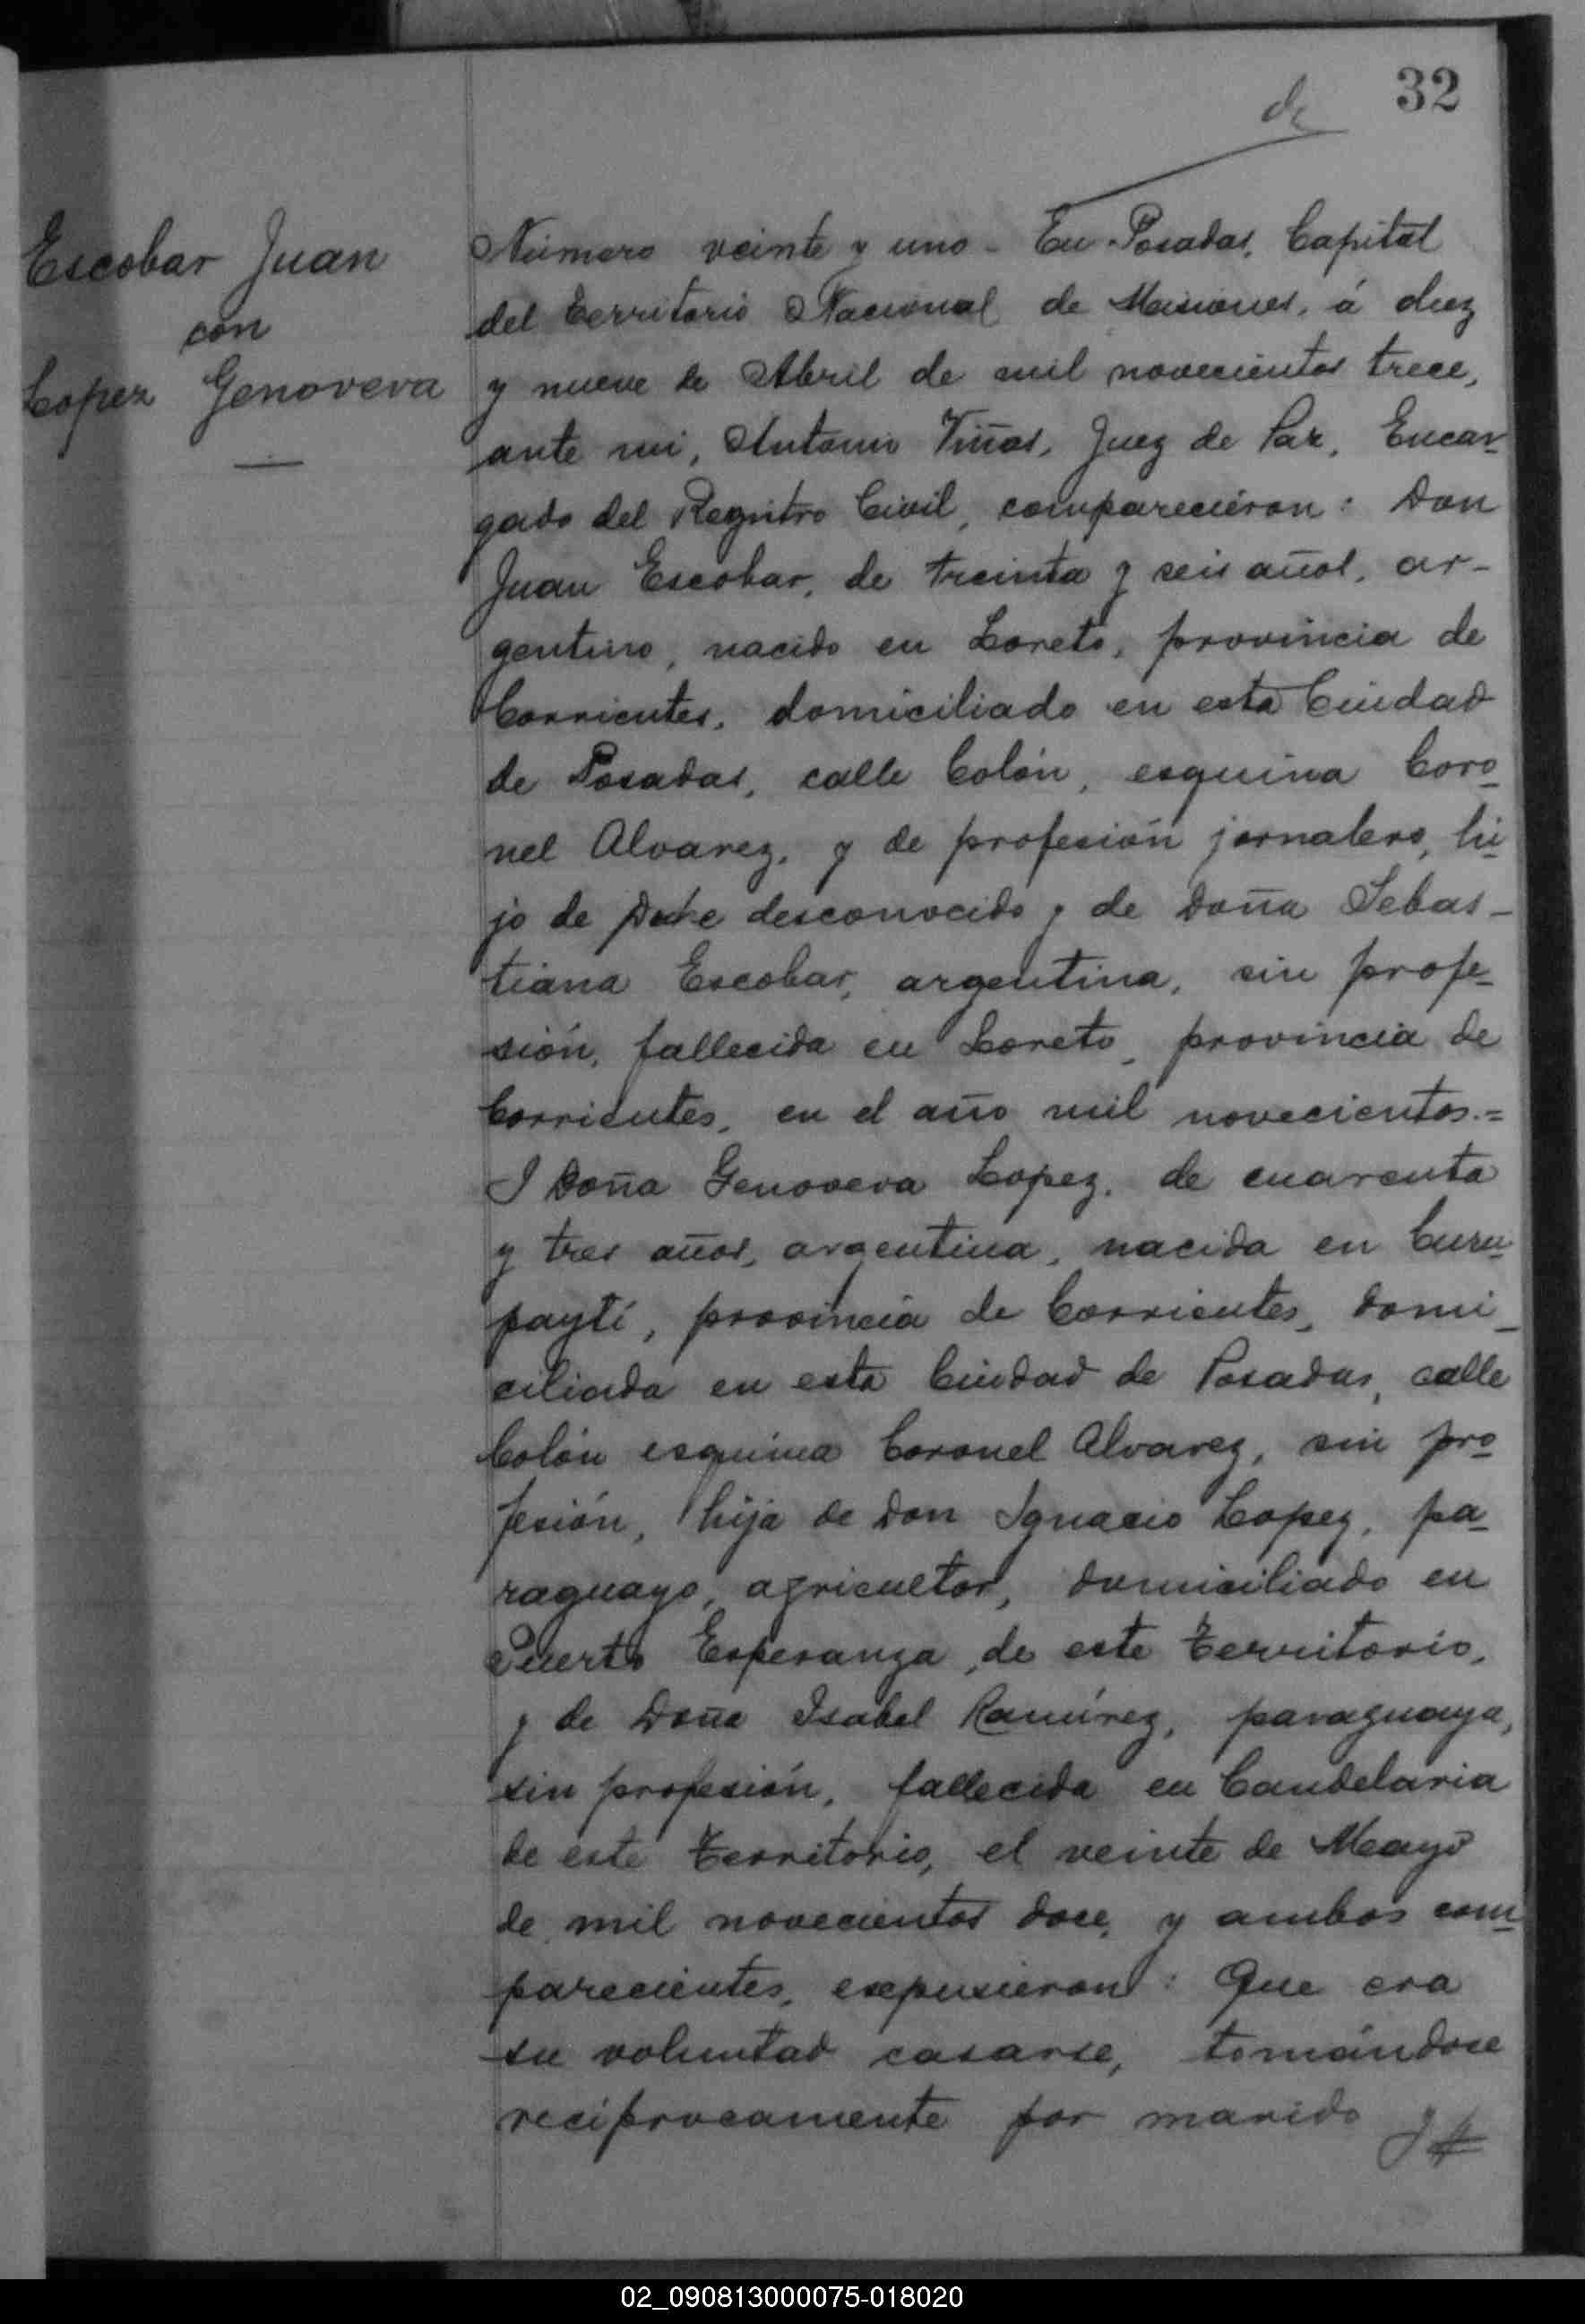 32
Escobar Juan
con
Lopez Genoveva
Número veinte y uno - En Posadas, Capital
del Territorio Nacional de Misiones, á diez
y nueve de Abril de mil novecientos trece,
ante mi, Antonio Viñas, Juez de Paz, Encar-
gado del Registro Civil, comparecieron: Don
Juan Escobar, de treinta y seis años, ar-
gentino, nacido en Loreto, provincia de
Corrientes, domiciliado en esta Ciudad
de Posadas, calle Colón, esquina Coro-
nel Alvarez, y de profesión jornalero, hi-
jo de padre desconocido y de Doña Sebas-
tiana Escobar, argentina, sin profe-
sión, fallecida en Loreto, provincia de
Corrientes, en el año mil novecientos.=
I Doña Genoveva Lopez, de cuarenta
y tres años, argentina, nacida en Curu-
paytí, provincia de Corrientes, domi-
ciliada en esta Ciudad de Posadas, calle
Colón esquina Coronel Alvarez, sin pro-
fesión, hija de Don Ignacio Lopez, pa-
raguayo, agricultor, domiciliado en
Puerto Esperanza, de este Territorio,
y de Doña Isabel Ramírez, paraguaya,
sin profesión, fallecida en Candelaria
de este Territorio, el veinte de Mayo
de mil novecientos doce, y ambos com-
parecientes, expusieron: Que era
su voluntad casarse, tomándose
recíprocamente por marido y
02_090813000075-018020